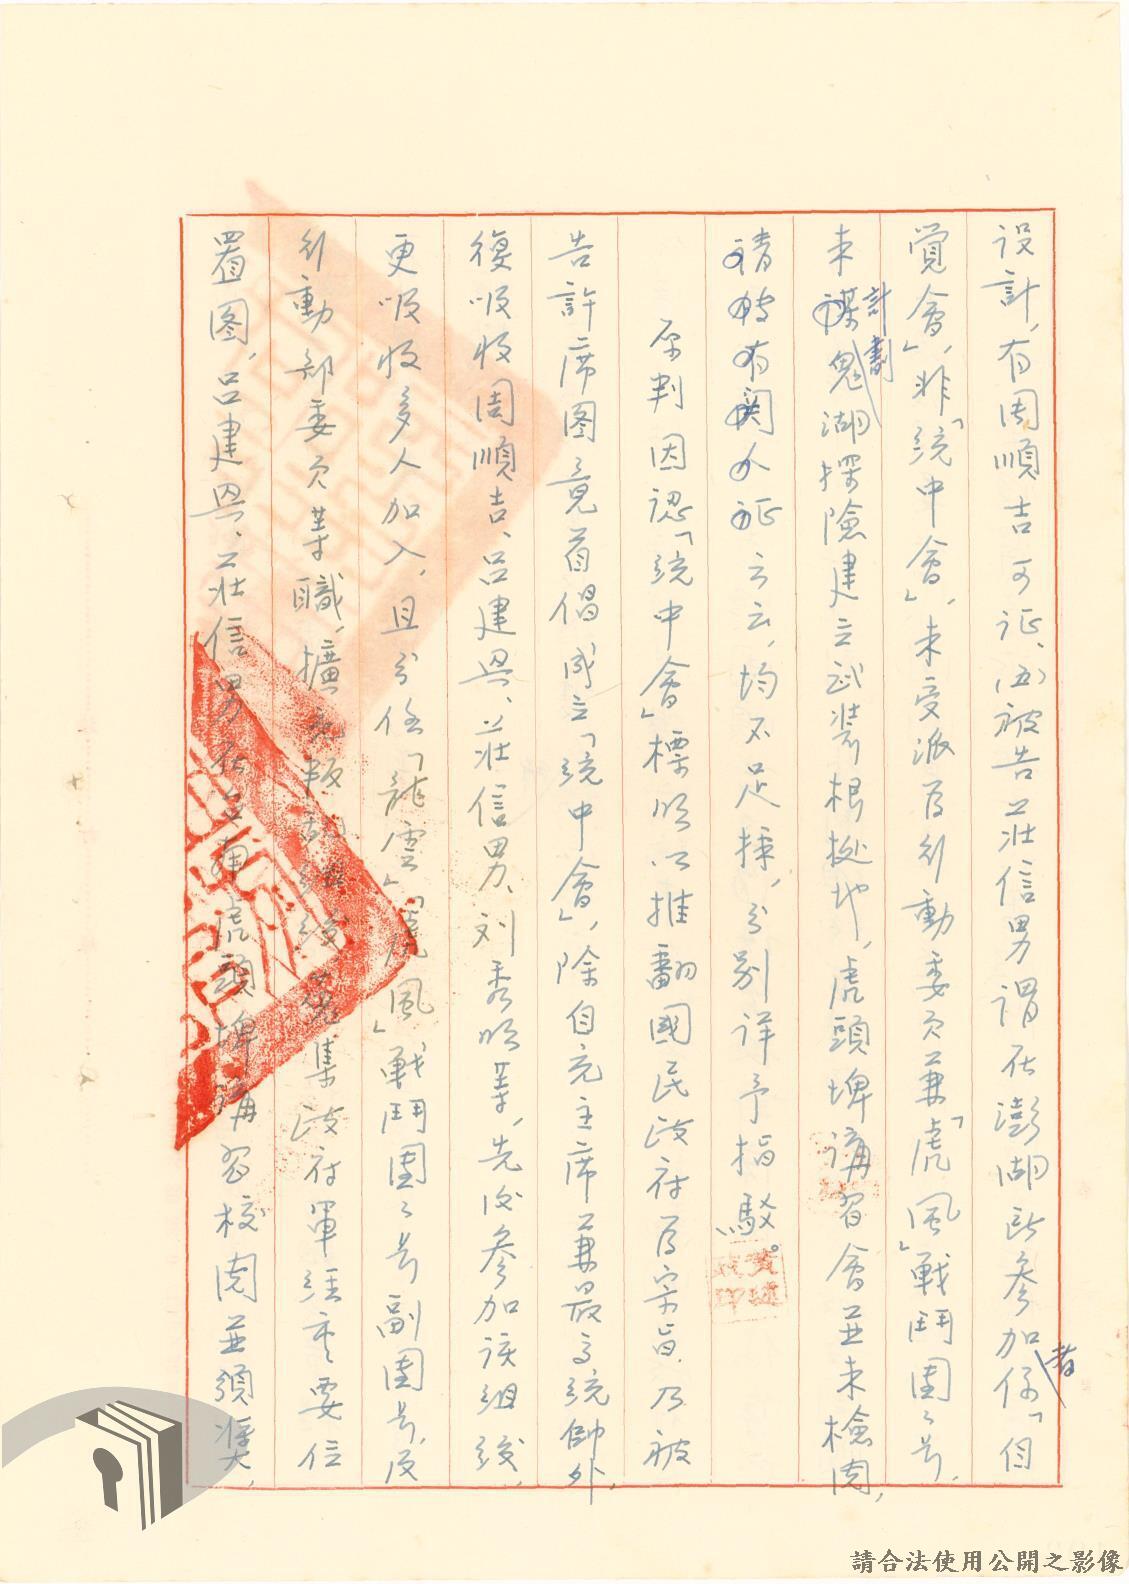 設計,有周順吉可证、(五)被告莊信男謂在澎湖所參加者係「自
覺會」,非「統中會」,未受派為行動委員兼「虎風」戰鬥團團長,
未計劃鬼湖探險建立武裝根據地,虎頭埤講習會並未檢閱,
云云,均不足採,分別詳予指駁。
原判因認「統中會」標明以推翻國民政府為宗旨,乃被
告許席图竟首倡成立「統中會」,除自充主席兼最高統帥外,
復吸收周順吉、呂建興、莊信男、刘秀明等,先後參加該組織,
更吸收多人加入,且分任「龍雲」「虎風」戰鬥團團長副團長,及
行動部委員等職,擴充叛亂組織後蒐集政府軍經重要位
置图,呂建興、莊信男在台南虎頭埤講習校閱並頒獎,
請合法使用公開之影像